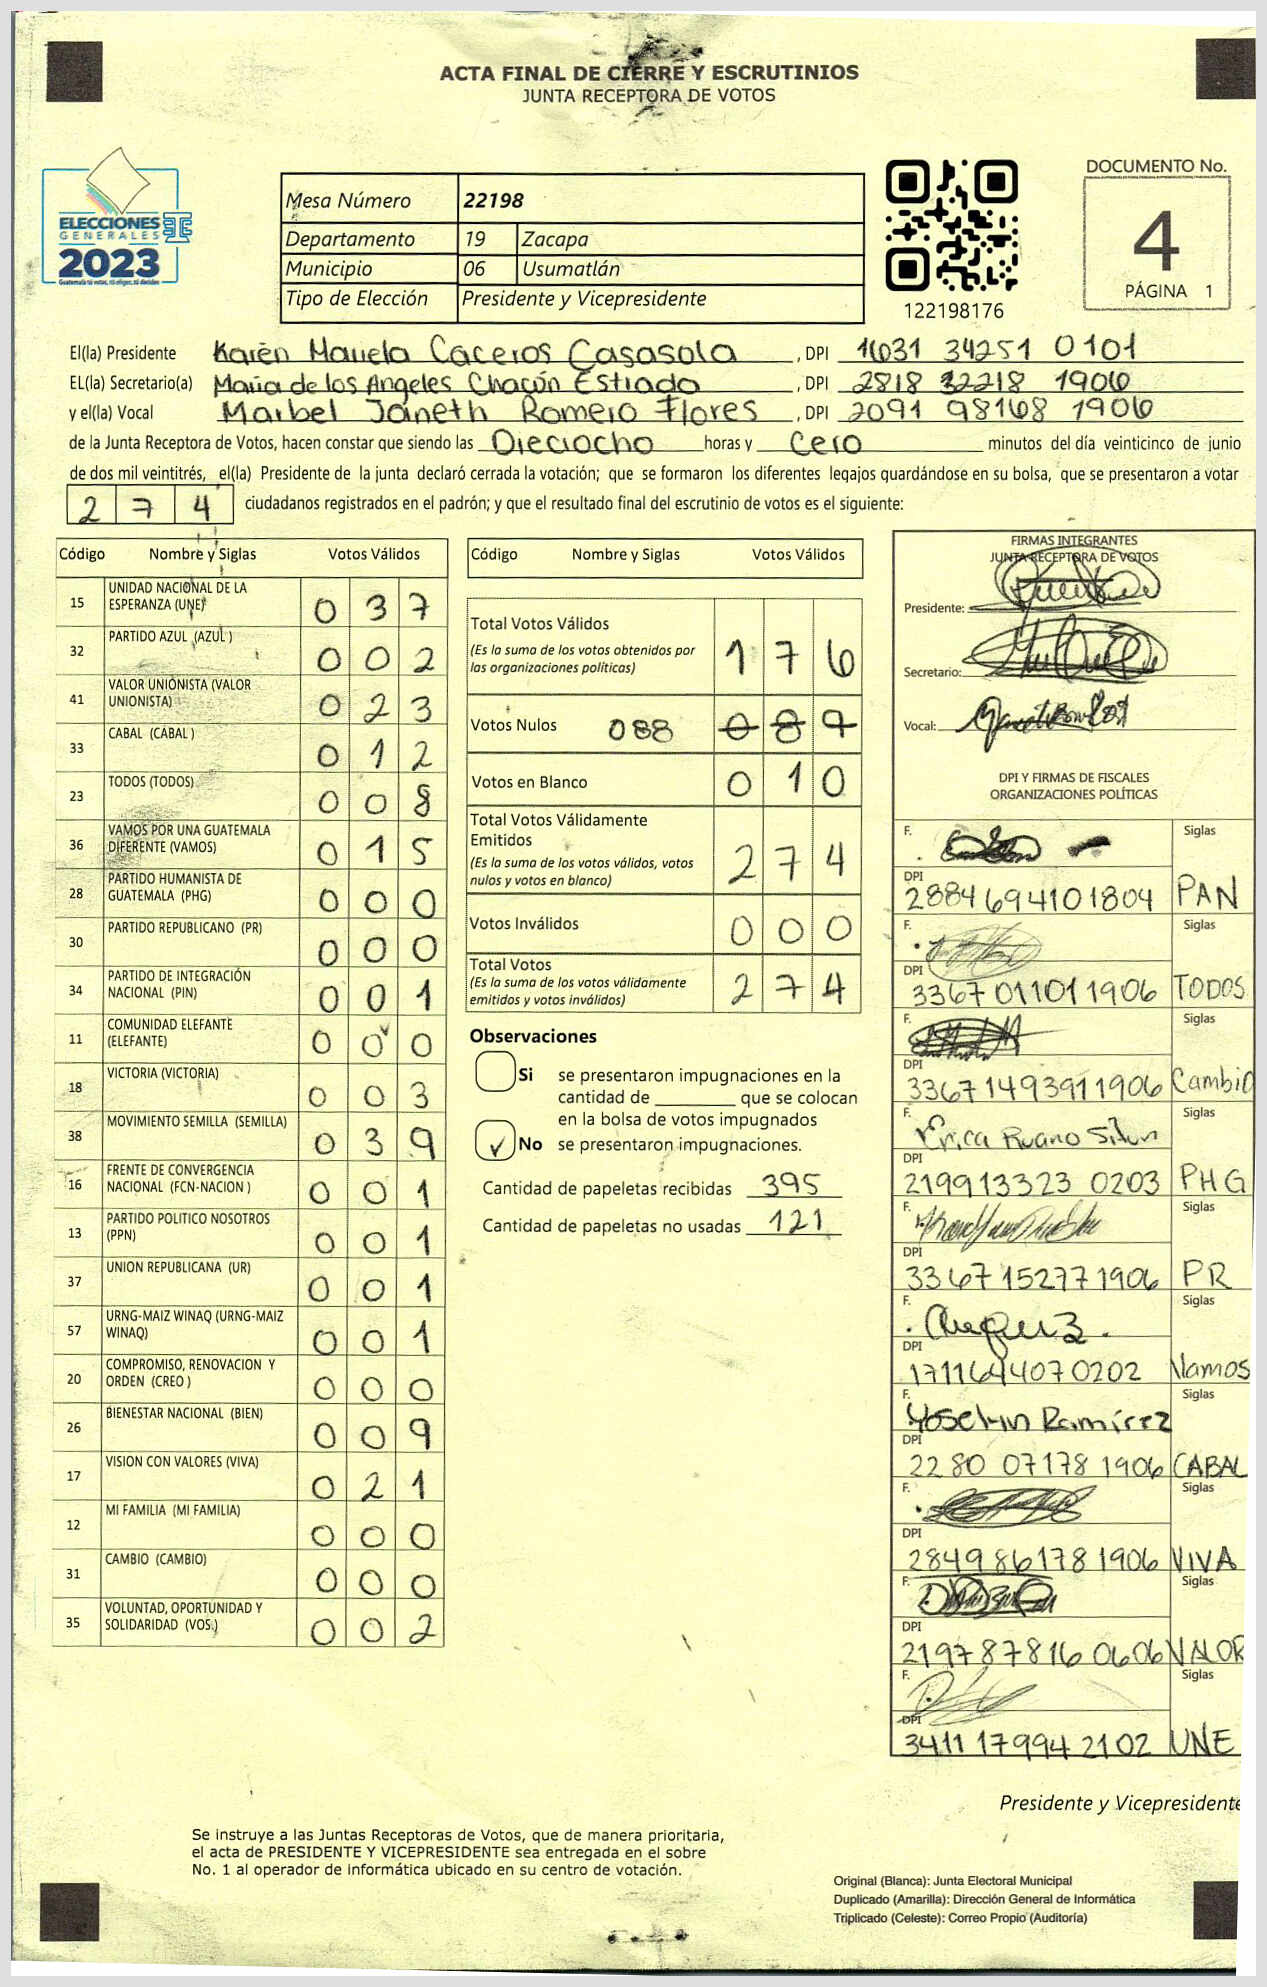 ACTA FINAL DE CIERRE Y ESCRUTINIOS
JUNTA RECEPTORA DE VOTOS
ELECCIONES
GENERALES
2023
Guatemala tú votas, tú eliges, tú decides
Mesa Número 22198
Departamento 19 Zacapa
Municipio 06 Usumatlán
Tipo de Elección Presidente y Vicepresidente
122198176
DOCUMENTO No.
4
PÁGINA 1
El(la) Presidente Karen Mariela Caceros Casasola, DPI 1631 34251 0101
EL(la) Secretario(a) Maria de los Angeles Chacón Estrada, DPI 2818 32218 1906
y el(la) Vocal Maribel Janeth Romero Flores, DPI 2091 98168 1906
de la Junta Receptora de Votos, hacen constar que siendo las Dieciocho horas y Cero minutos del día veinticinco de junio
de dos mil veintitrés, el(la) Presidente de la junta declaró cerrada la votación; que se formaron los diferentes legajos guardándose en su bolsa, que se presentaron a votar
274 ciudadanos registrados en el padrón; y que el resultado final del escrutinio de votos es el siguiente:
Código Nombre y Siglas Votos Válidos
15 UNIDAD NACIONAL DE LA
ESPERANZA (UNE) 037
32 PARTIDO AZUL (AZUL ) 002
41 VALOR UNIONISTA (VALOR
UNIONISTA) 023
33 CABAL (CABAL ) 012
23 TODOS (TODOS) 008
36 VAMOS POR UNA GUATEMALA
DIFERENTE (VAMOS) 015
28 PARTIDO HUMANISTA DE
GUATEMALA (PHG) 000
30 PARTIDO REPUBLICANO (PR) 000
34 PARTIDO DE INTEGRACIÓN
NACIONAL (PIN) 001
11 COMUNIDAD ELEFANTE
(ELEFANTE) 000
18 VICTORIA (VICTORIA) 003
38 MOVIMIENTO SEMILLA (SEMILLA) 039
16 FRENTE DE CONVERGENCIA
NACIONAL (FCN-NACION ) 001
13 PARTIDO POLITICO NOSOTROS
(PPN) 001
37 UNION REPUBLICANA (UR) 001
57 URNG-MAIZ WINAQ (URNG-MAIZ
WINAQ) 001
20 COMPROMISO, RENOVACION Y
ORDEN (CREO ) 000
26 BIENESTAR NACIONAL (BIEN) 009
17 VISION CON VALORES (VIVA) 021
12 MI FAMILIA (MI FAMILIA) 000
31 CAMBIO (CAMBIO) 000
35 VOLUNTAD, OPORTUNIDAD Y
SOLIDARIDAD (VOS.) 002
Código Nombre y Siglas Votos Válidos
Total Votos Válidos
(Es la suma de los votos obtenidos por
las organizaciones políticas) 176
Votos Nulos 088 087
Votos en Blanco 010
Total Votos Válidamente
Emitidos
(Es la suma de los votos válidos, votos
nulos y votos en blanco) 274
Votos Inválidos 000
Total Votos
(Es la suma de los votos válidamente
emitidos y votos inválidos) 274
Observaciones
Si se presentaron impugnaciones en la
cantidad de ________ que se colocan
en la bolsa de votos impugnados
✓ No se presentaron impugnaciones.
Cantidad de papeletas recibidas 395
Cantidad de papeletas no usadas 121
FIRMAS INTEGRANTES
JUNTA RECEPTORA DE VOTOS
Presidente:
Secretario:
Vocal:
DPI Y FIRMAS DE FISCALES
ORGANIZACIONES POLÍTICAS
F. Siglas
DPI
2884694101804 PAN
F. Siglas
DPI
3367011011906 TODOS
F. Siglas
DPI
3367149391 1906 Cambio
F. Erica Ruano Siglas
DPI
219913323 0203 PHG
F. Siglas
DPI
3367152771906 PR
F. Siglas
DPI
1711644070202 Vamos
F. Yoselin Ramírez Siglas
DPI
2280 07178 1906 CABAL
F. Siglas
DPI
2849861781906 VIVA
F. Siglas
DPI
2197878160606 VALOR
F. Siglas
DPI
3411179942102 UNE
Presidente y Vicepresidente
Se instruye a las Juntas Receptoras de Votos, que de manera prioritaria,
el acta de PRESIDENTE Y VICEPRESIDENTE sea entregada en el sobre
No. 1 al operador de informática ubicado en su centro de votación.
Original (Blanca): Junta Electoral Municipal
Duplicado (Amarilla): Dirección General de Informática
Triplicado (Celeste): Correo Propio (Auditoría)